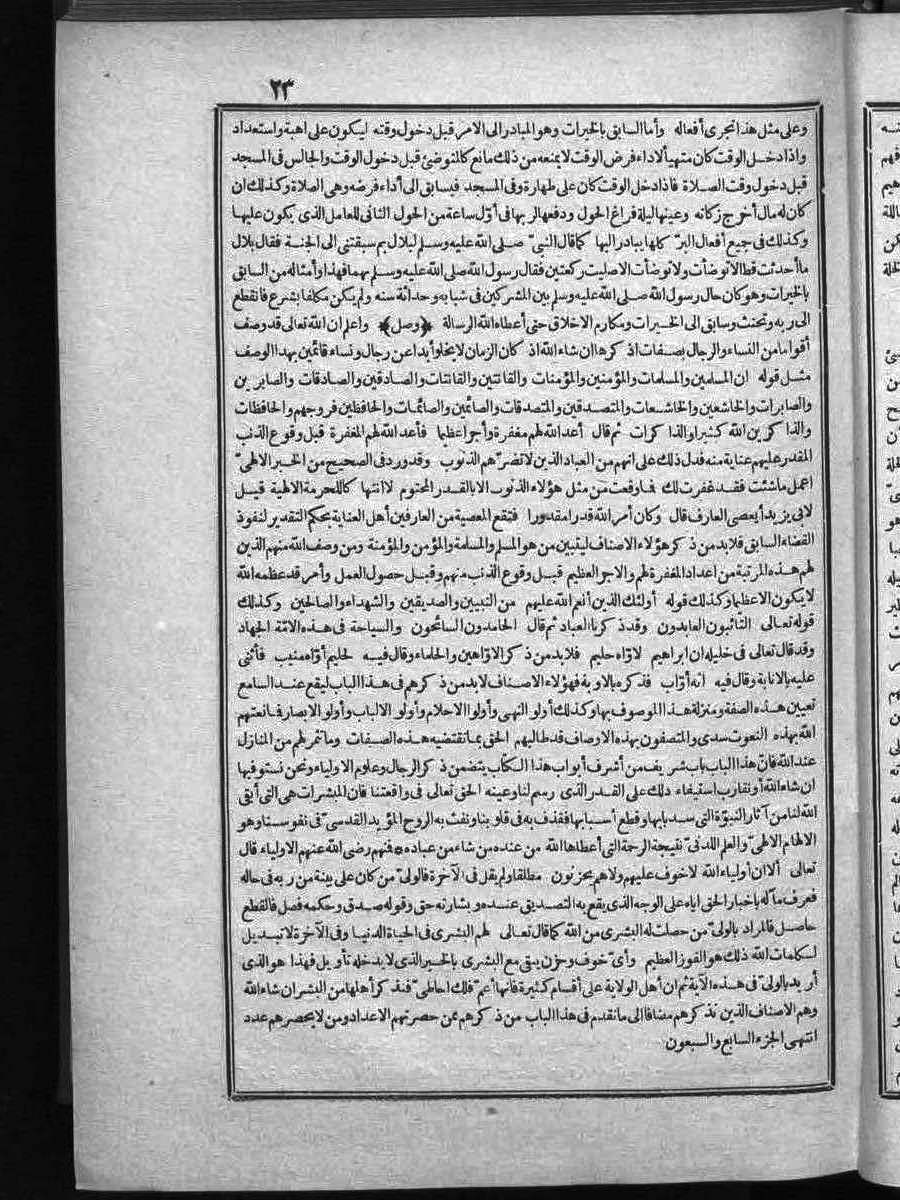 ٢٣
وعلى مثل هذا تجرى أفعاله وأما السابق بالخيرات وهو المبادر الى الامر قبل دخول وقته ليكون على اهبة واستعداد
واذا دخل الوقت كان متهيأ لاداء فرض الوقت لا يمنعه من ذلك مانع كالمتوضئ قبل دخول الوقت والجالس فى المسجد
قبل دخول وقت الصلاة فاذا دخل الوقت كان على طهارة وفى المسجد فيسابق الى أداء فرضه وهى الصلاة وكذلك ان
كان له مال أخرج زكاته وعينها ليلة فراغ الحول ودفعها لربها فى أوّل ساعة من الحول الثانى للعامل الذى يكون عليها
وكذلك فى جميع أفعال البرّ كلها يبادر اليها كما قال النبىّ صلى الله عليه وسلم لبلال بم سبقتنى الى الجنة فقال بلال
ما أحدثت قط الا توضأت ولا توضأت الا صليت ركعتين فقال رسول الله صلى الله عليه وسلم بهما فهذا وأمثاله من السابق
بالخيرات وهو كان حال رسول الله صلى الله عليه وسلم بين المشركين فى شبابه وحداثة سنه ولم يكن مكلفا بشرع فانقطع
الى ربه وتحنث وسابق الى الخيرات ومكارم الاخلاق حتى أعطاه الله الرسالة ﴿وصل﴾ واعلم ان الله تعالى قد وصف
أقواما من النساء والرجال بصفات أذكرها ان شاء الله اذ كان الزمان لا يخلو أبدا عن رجال ونساء قائمين بهذا الوصف
مثل قوله ان المسلمين والمسلمات والمؤمنين والمؤمنات والقانتين والقانتات والصادقين والصادقات والصابرين
والصابرات والخاشعين والخاشعات والمتصدقين والمتصدقات والصائمين والصائمات والحافظين فروجهم والحافظات
والذاكرين الله كثيرا والذاكرات ثم قال أعد الله لهم مغفرة وأجرا عظيما فأعد الله لهم المغفرة قبل وقوع الذنب
المقدر عليهم عناية منه فدل ذلك على انهم من العباد الذين لا تضرّهم الذنوب وقد ورد فى الصحيح من الخبر الالهىّ
اعمل ما شئت فقد غفرت لك فما وقعت من مثل هؤلاء الذنوب الا بالقدر المحتوم لا انتهاكا للحرمة الالهية قيل
لابى يزيد أيعصى العارف قال وكان أمر الله قدرا مقدورا فتقع المعصية من العارفين أهل العناية بحكم التقدير لنفوذ
القضاء السابق فلابد من ذكر هؤلاء الاصناف ليتبين من هو المسلم والمسلمة والمؤمن والمؤمنة ومن وصف الله منهم الذين
لهم هذه المرتبة من اعداد المغفرة لهم والاجر العظيم قبل وقوع الذنب منهم وقبل حصول العمل وأمر قد عظمه الله
لا يكون الا عظيما وكذلك قوله أولئك الذين أنعم الله عليهم من النبيين والصديقين والشهداء والصالحين وكذلك
قوله تعالى التائبون العابدون وقد ذكرنا العباد ثم قال الحامدون السائحون والسياحة فى هذه الامّة الجهاد
وقد قال تعالى فى خليله ان ابراهيم لاوّاه حليم فلابد من ذكر الاوّاهين والحلماء وقال فيه لحليم أوّاه منيب فأثنى
عليه بالانابة وقال فيه انه أوّاب فذكره بالاوبة فهؤلاء الاصناف لابد من ذكرهم فى هذا الباب ليقع عند السامع
تعيين هذه الصفة ومنزلة هذا الموصوف بها وكذلك أولو النهى وأولوا الاحلام وأولو الالباب وأولو الابصار فما نعتهم
الله بهذه النعوت سدى والمتصفون بهذه الاوصاف قد طالبهم الحق بما تقتضيه هذه الصفات وما تثمر لهم من المنازل
عند الله فانّ هذا الباب باب شريف من أشرف أبواب هذا الكتاب يتضمن ذكر الرجال وعلوم الاولياء ونحن نستوفيها
ان شاء الله أو نقارب استيفاء ذلك على القدر الذى رسم لنا وعينه الحق تعالى فى واقعتنا فان المبشرات هى التى أبقى
الله لنا من آثار النبوّة التى سد بابها وقطع أسبابها فقذف به فى قلوبنا ونفث به الروح المؤيد القدسىّ فى نفوسنا وهو
الالهام الالهىّ والعلم اللدنىّ نتيجة الرحمة التى أعطاها الله من عنده من شاء من عباده * فنهم رضى الله عنهم الاولياء قال
تعالى ألا ان أولياء الله لا خوف عليهم ولا هم يحزنون مطلقا ولم يقل فى الآخرة فالولىّ من كان على بينة من ربه فى حاله
فعرف مآله باخبار الحق اياه على الوجه الذى يقع به التصديق عنده وبشارته حق وقوله صدق وحكمه فصل فالقطع
حاصل فالمراد بالولىّ من حصلت له البشرى من الله كما قال تعالى لهم البشرى فى الحياة الدنيا وفى الآخرة لا تبديل
لكلمات الله ذلك هو الفوز العظيم وأىّ خوف وحزن يبقى مع البشرى بالخير الذى لا يدخله تأويل فهذا هو الذى
أريد بالولىّ فى هذه الآية ثم ان أهل الولاية على أقسام كثيرة فانها أعم فلك احاطىّ فنذكر أهلها من البشر ان شاء الله
وهم الاصناف الذين نذكرهم مضافا الى ما تقدم فى هذا الباب من ذكرهم ممن حصرتهم الاعداد ومن لا يحصرهم عدد
انتهى الجزء السابع والسبعون